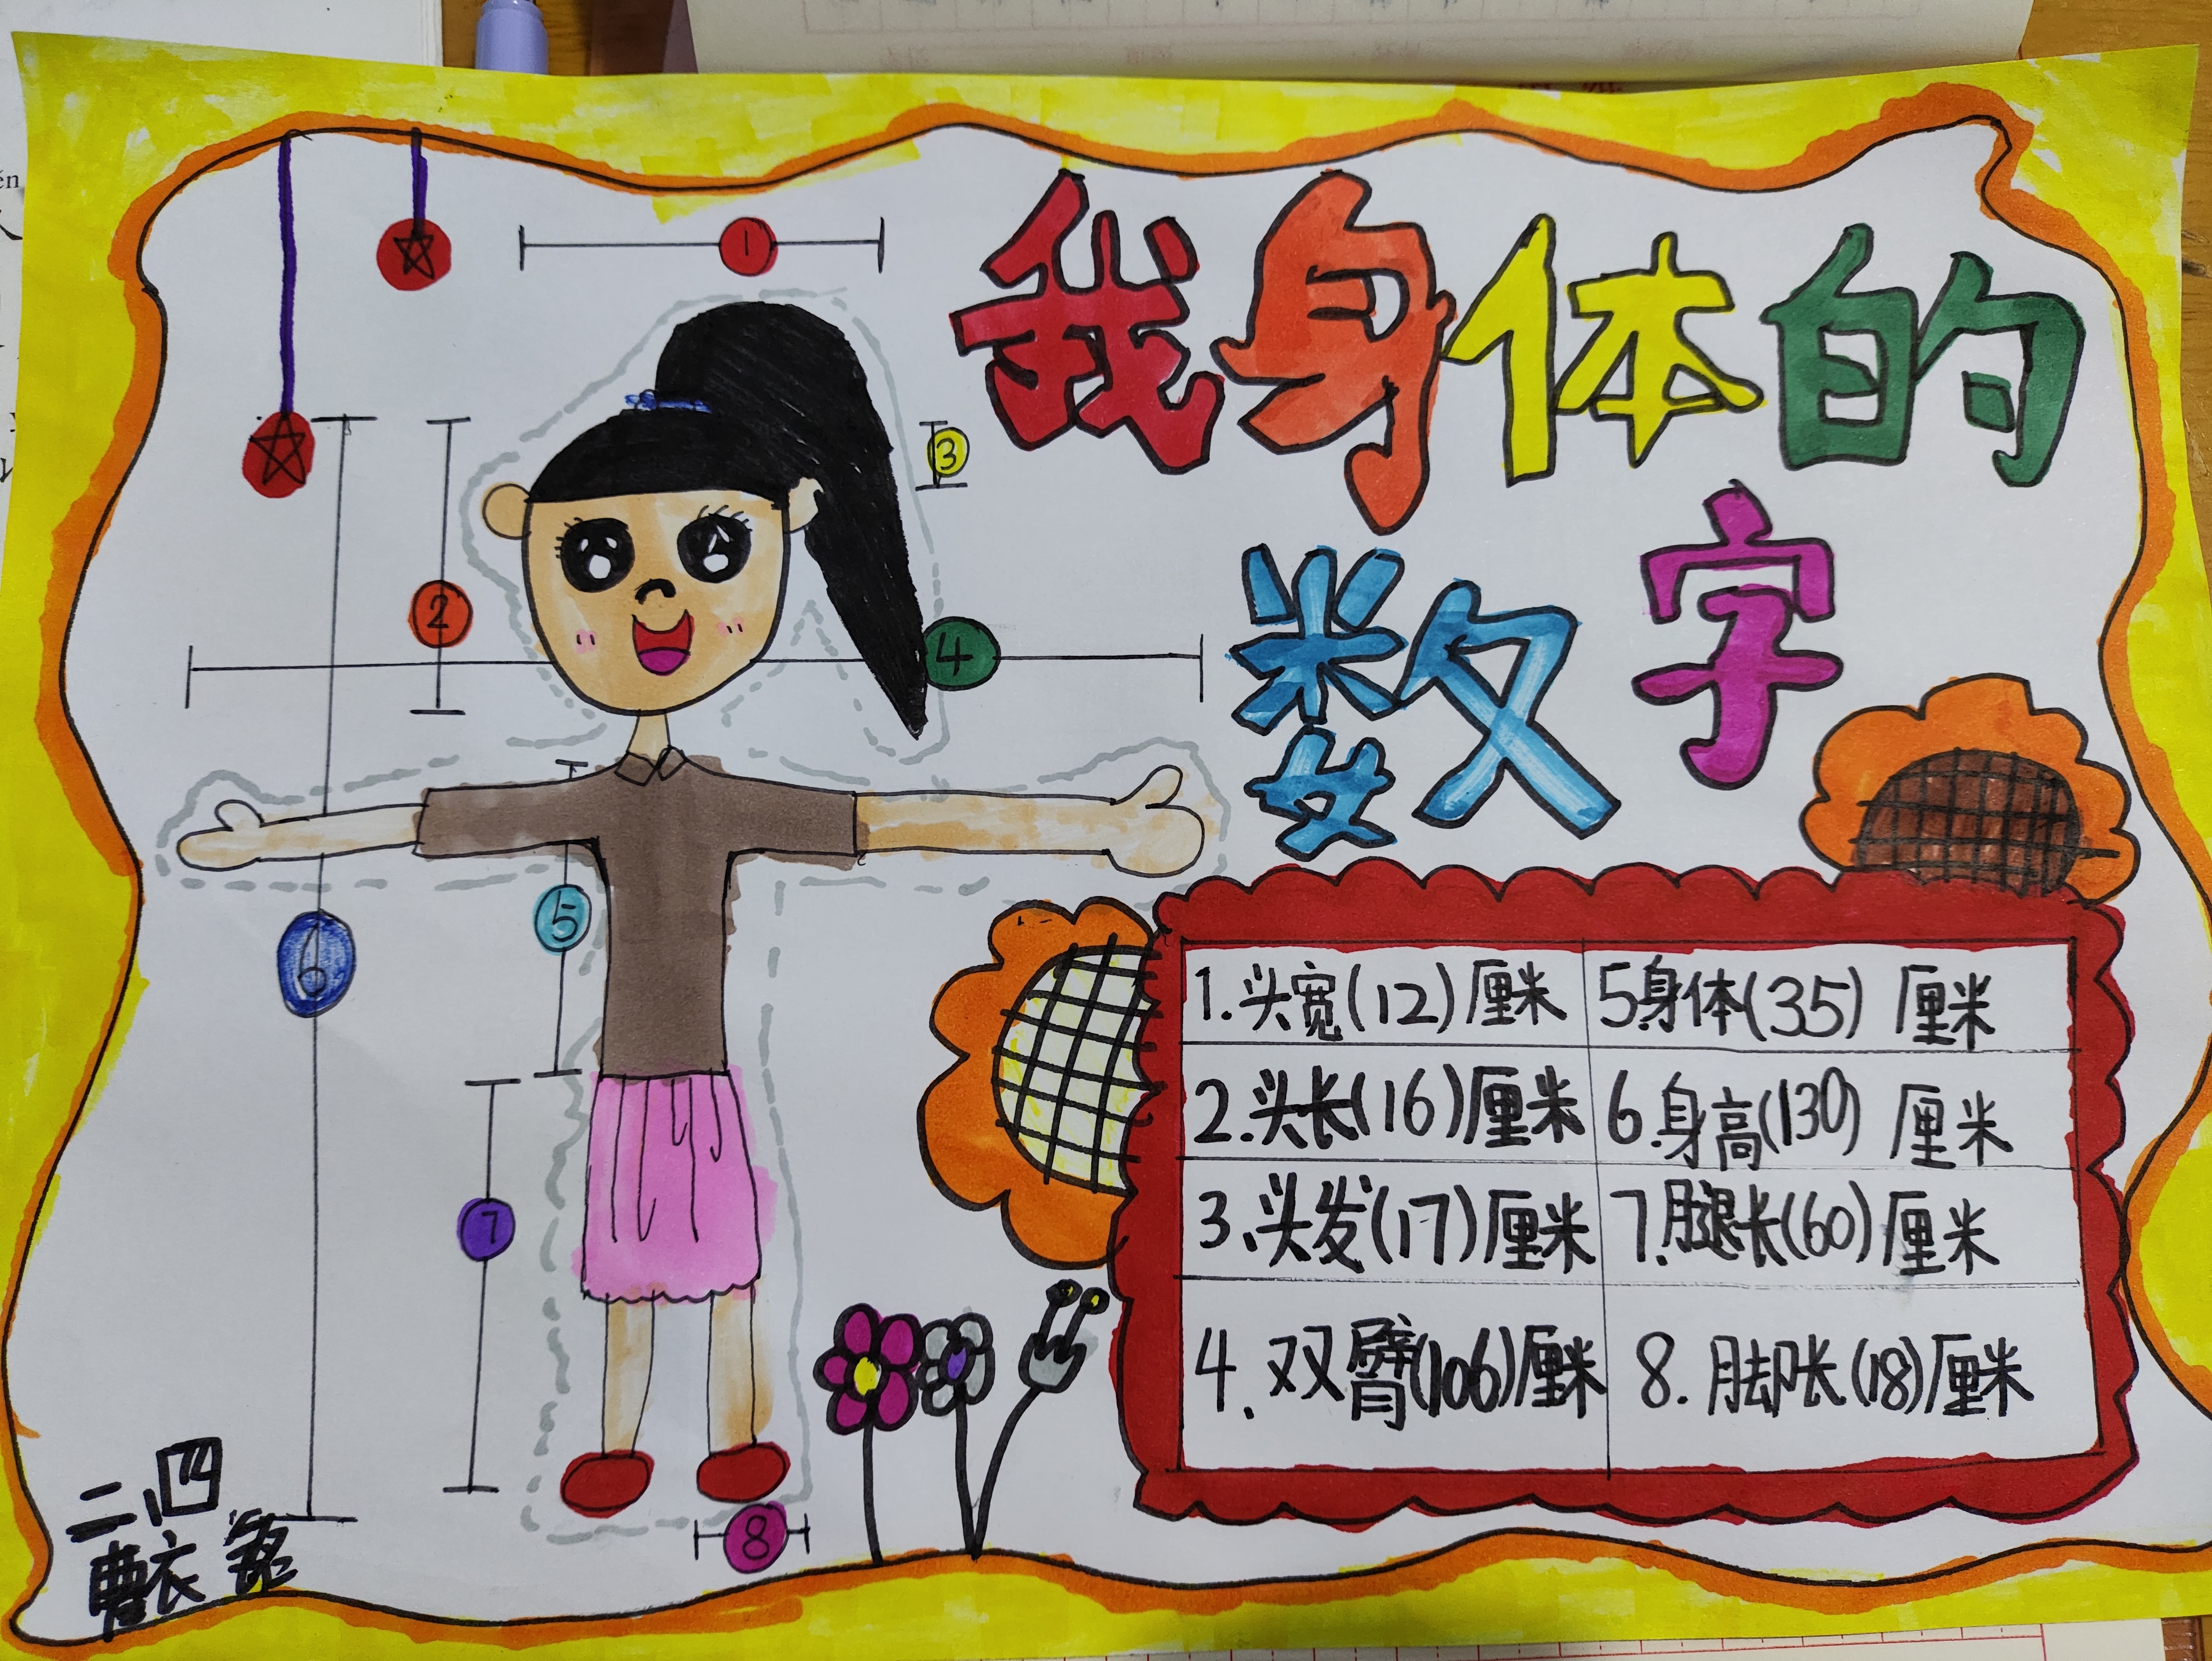 我身体的
数字
1
2
3
4
5
6
7
8
1.头宽(12)厘米
5身体(35)厘米
2.头长(16)厘米
6.身高(130)厘米
3.头发(17)厘米
7.腿长(60)厘米
4.双臂(106)厘米
8.脚长(18)厘米
二.四
曹衣